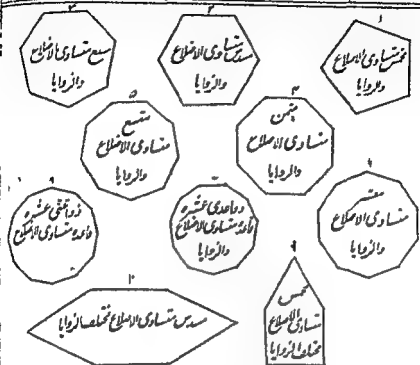 ۱
مخمس متساوی الاضلاع
والزوایا
۲
مسدس متساوی الاضلاع
والزوایا
۳
مسبع متساوی الاضلاع
والزوایا
۴
مثمن
متساوی الاضلاع
والزوایا
۵
متسع
متساوی الاضلاع
والزوایا
۶
معشر
متساوی الاضلاع
والزوایا
ذواحدی عشرة
قاعدة متساوی الاضلاع
والزوایا
ذو اثنی عشرة
قاعدة متساوی الاضلاع
۹
مخمس
متساوی الاضلاع
مختلف الزوایا
۱۰
مسدس متساوی الاضلاع مختلف الزوایا